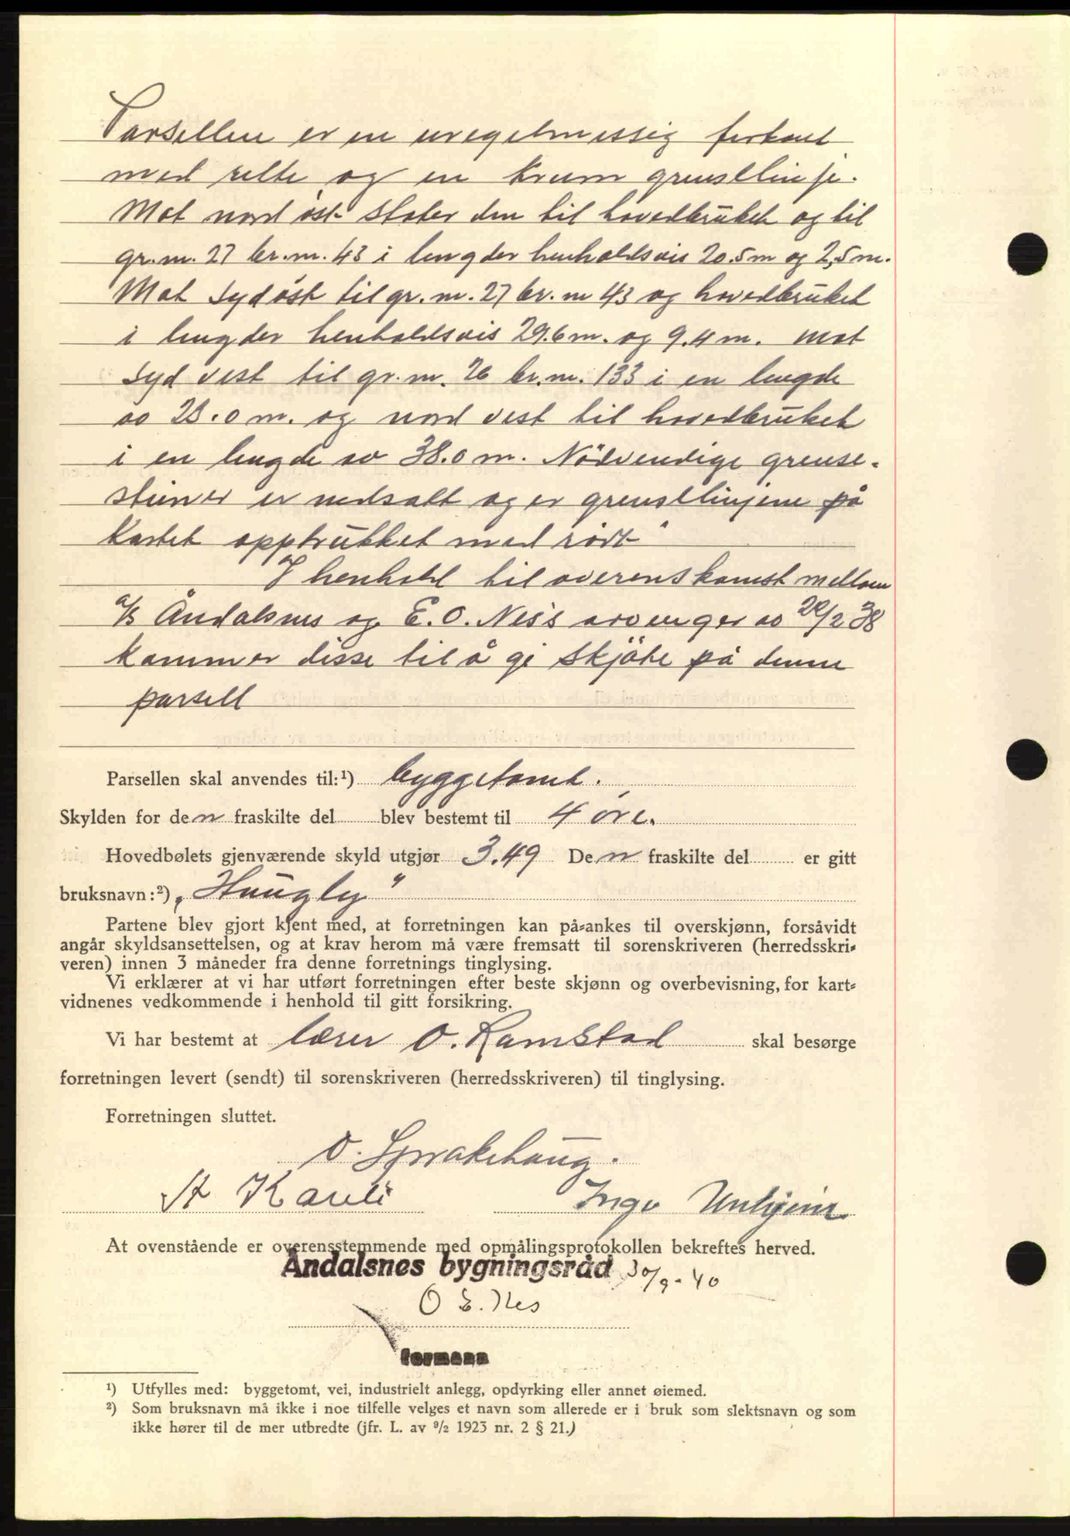 Parsellen er en uregelmessig firkant
med rette og en krum grenselinje.
Mot nord øst støter den til hovedbruket og til
gr.nr. 27 br.nr. 43 i lengder henholdsvis 20.5m og 2,5m.
Mot sydøst til gr.nr. 27 br.nr 43 og hovedbruket
i lengder henholdsvis 29.6m. og 9.4m. mot
syd vest til gr.nr. 26 br.nr. 133 i en lengde
av 23.0m. og nord vest til hovedbruket
i en lengde av 38.0m. Nödvendige grense-
steiner er nedsatt og er grenselinjene på
Kartet opptrukket med rödt"
I henhold til overenskomst mellem
a/s Åndalsnes og E.O. Ness arvinger av 22/2 38
kommer disse til å gi skjöte på denne
parsell
Parsellen skal anvendes til:¹) byggetomt.
Skylden for den fraskilte del blev bestemt til 4 øre.
Hovedbølets gjenværende skyld utgjør 3.49 Den fraskilte del er gitt
bruksnavn:²) „Haugly"
Partene blev gjort kjent med, at forretningen kan på-ankes til overskjønn, forsåvidt
angår skyldsansettelsen, og at krav herom må være fremsatt til sorenskriveren (herredsskri-
veren) innen 3 måneder fra denne forretnings tinglysing.
Vi erklærer at vi har utført forretningen efter beste skjønn og overbevisning, for kart-
vidnenes vedkommende i henhold til gitt forsikring.
Vi har bestemt at lærer O. Ramstad skal besørge
forretningen levert (sendt) til sorenskriveren (herredsskriveren) til tinglysing.
Forretningen sluttet.
O. Sprakehaug.
A Kavli Ingv Unhjem
At ovenstående er overensstemmende med opmålingsprotokollen bekreftes herved.
Åndalsnes bygningsråd 30/9-40
O E. Nes
formann
¹) Utfylles med: byggetomt, vei, industrielt anlegg, opdyrking eller annet øiemed.
²) Som bruksnavn må ikke i noe tilfelle velges et navn som allerede er i bruk som slektsnavn og som
ikke hører til de mer utbredte (jfr. L. av ⁹/₂ 1923 nr. 2 § 21.)